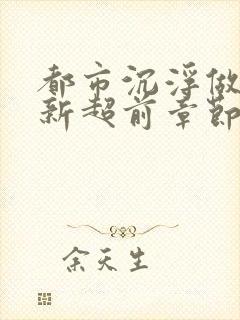 都市沉浮做
新超前章節
余天生